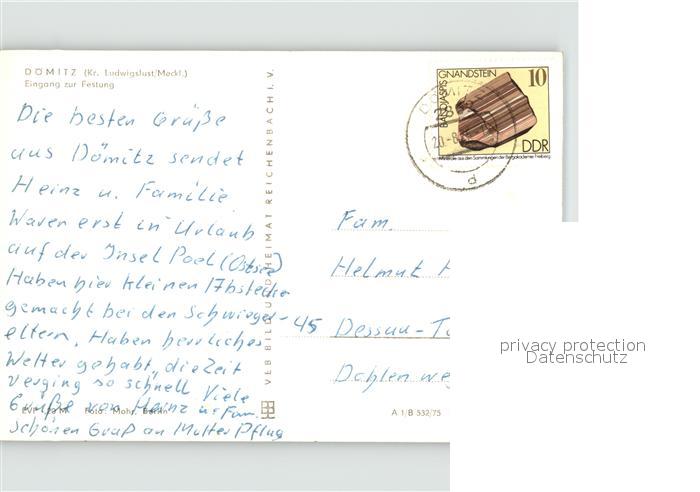 DÖMITZ (Kr. Ludwigslust/Meckl.)
Eingang zur Festung
Die besten Grüße
aus Dömitz sendet
Heinz u. Familie
Waren erst in Urlaub
auf der Insel Poel (Ostsee)
Haben hier kleinen Abstecher
gemacht bei den Schwieger-
eltern. Haben herrliches
Wetter gehabt, die Zeit
verging so schnell Viele
Grüße von Heinz u. Fam.
Schönen Gruß an Mutter Pflug
Foto: Mohr, Berlin
VEB BILD UND HEIMAT REICHENBACH I. V.
A 1/B 532/75
BANDJASPIS
GNANDSTEIN
10
DDR
Minerale aus den Sammlungen der Bergakademie Freiberg
DÖMITZ
20.-8.
d
Fam.
Helmut
45 Dessau-
privacy protection
Datenschutz